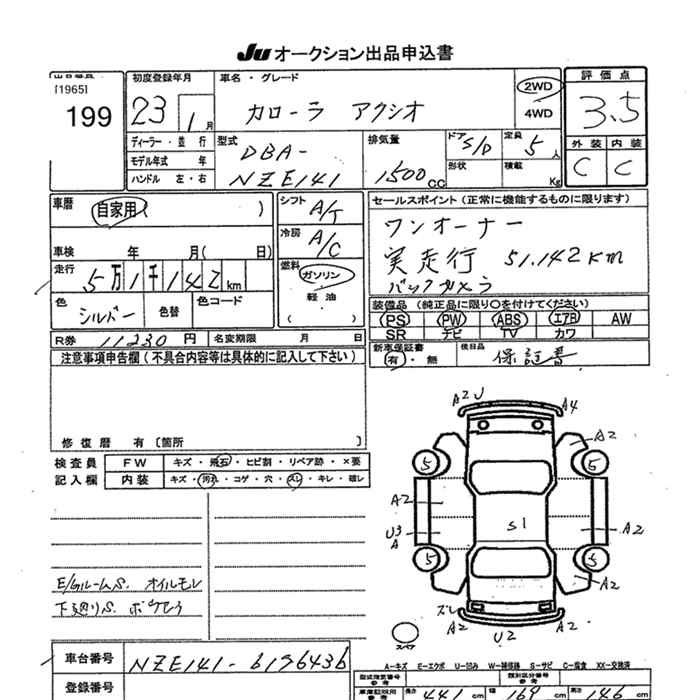 JU オークション出品申込書
[1965]
199
初度登録年月
23 1月
ディーラー・並行
モデル年式 年
ハンドル 左・右
車名・グレード
カローラ アクシオ
2WD
4WD
評価点
3.5
外装 内装
C C
型式
DBA-
NZE141
排気量
1500cc
ドア 5/D
形状
定員 5人
積載 Kg
車暦
自家用( )
車検 年 月( 日)
走行
5万1千142km
色
シルバー
色替
色コード
シフト
A/T
冷房
A/C
燃料
ガソリン
軽油
セールスポイント(正常に機能するものに限ります)
ワンオーナー
実走行 51.142km
バックカメラ
装備品(純正品に限り○を付けてください)
PS PW ABS エアB AW
SR ナビ TV カワ
R券 11230円
名変期限 月 日
新車保証書
有・無
後日品
保証書
注意事項申告欄(不具合内容等は具体的に記入して下さい)
修復歴 有〔箇所 〕
検査員
記入欄
FW キズ・飛石・ヒビ割・リペア跡・×要
内装 キズ・汚れ・コゲ・穴・スレ・キレ・破レ
A2 U
A4
A2
5 5
A2
S1
U3
A
A2
5 5
A2
ズレ
A2
U2
A2
スペア
E/Gルーム S. オイルモレ
下廻り S.
車台番号
NZE141-6196436
登録番号
A-キズ E-エクボ U-凹み W-補修跡 S-サビ C-腐食 XX-交換済
型式指定番号
参考
類別区分番号
参考
長さ 441 cm
168 cm
146 cm